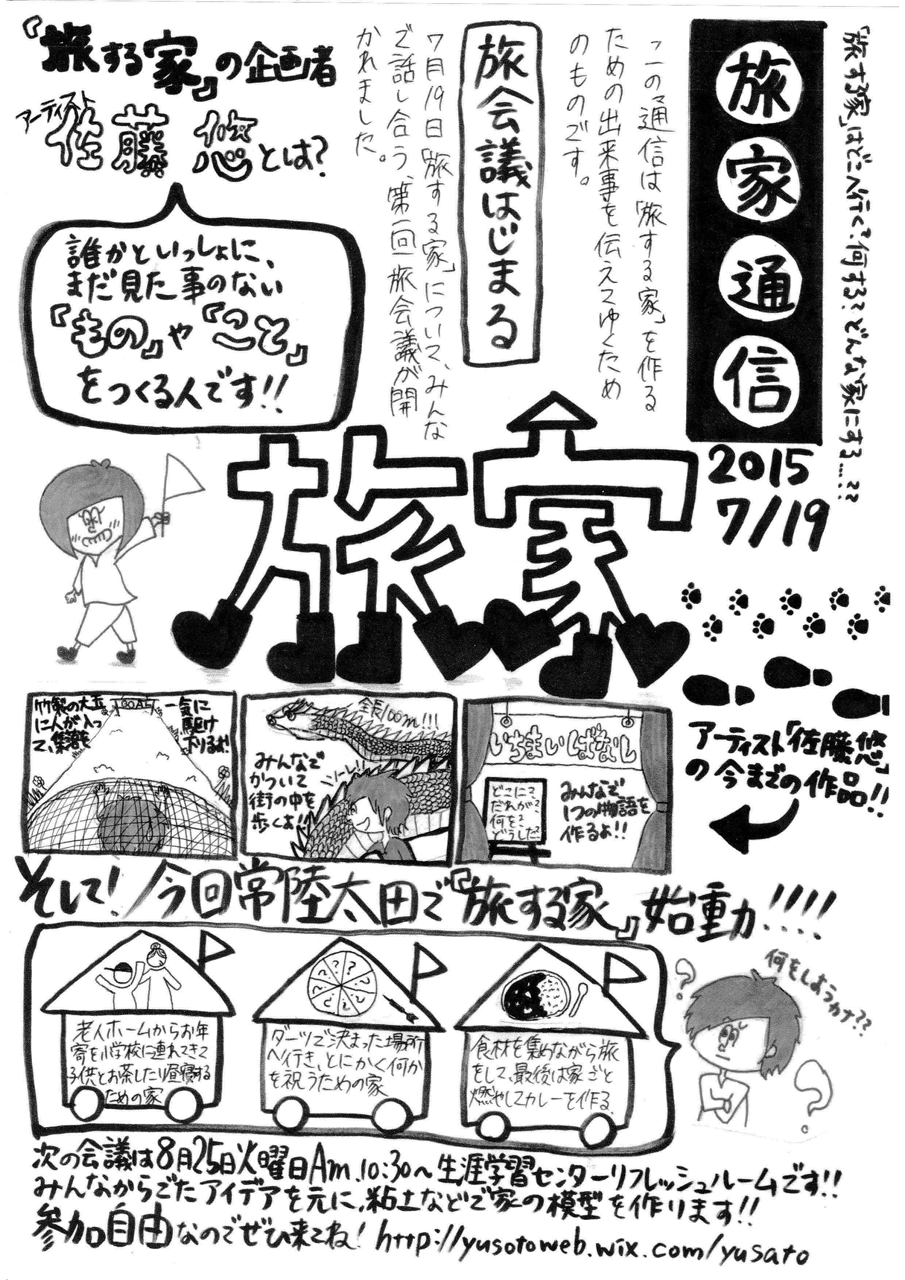 「旅する家」はどこへ行く?何する?どんな家にする…??
旅家通信
2015
7/19
この通信は「旅する家」を作る
ための出来事を伝えてゆくため
のものです。
旅会議はじまる
7月19日「旅する家」について、みんな
で話し合う、第一回旅会議が開
かれました。
『旅する家』の企画者
アーティスト
佐藤悠とは?
誰かといっしょに、
まだ見た事のない
『もの』や『こと』
をつくる人です!!
旅家
アーティスト「佐藤悠」
の今までの作品!!
竹製の大玉
に人が入っ
て、集落を
一気に
駆け
下りるよ!
GOAL
全長100m!!!
みんなで
かついで
街の中を
歩くよ!!
いちまいばなし
どこにて
だれが?
何を?
どうした?
みんなで
1つの物語を
作るよ!!
そして!今回常陸太田で『旅する家』始動!!!!
老人ホームからお年
寄を小学校に連れてきて
子供とお茶したり昼寝する
ための家
ダーツで決まった場所
へ行き、とにかく何か
を祝うための家
食材を集めながら旅
をして、最後は家ごと
燃やしてカレーを作る
何をしようカナ??
次の会議は8月25日火曜日Am.10:30〜生涯学習センターリフレッシュルームです!!
みんなからでたアイデアを元に、粘土などで家の模型を作ります!!
参加自由なのでぜひ来てね! http://yusotoweb.wix.com/yusato